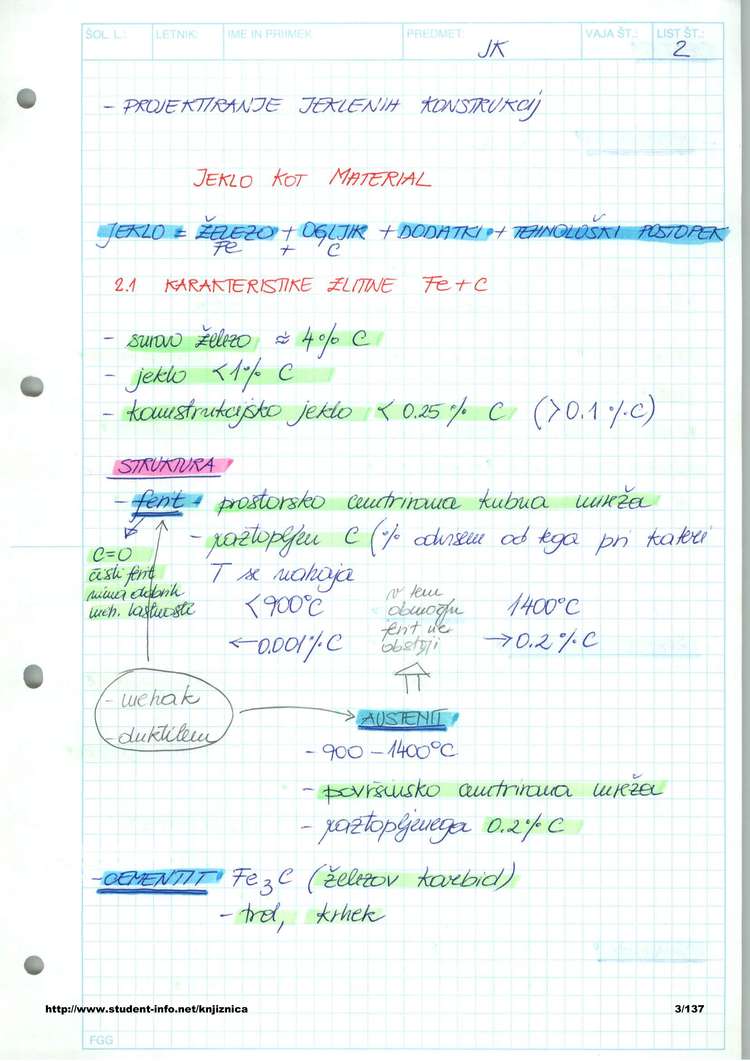 ŠOL. L.: LETNIK: IME IN PRIIMEK PREDMET: VAJA ŠT.: LIST ŠT.:
JK 2
- PROJEKTIRANJE JEKLENIH KONSTRUKCIJ
JEKLO KOT MATERIAL
JEKLO = ŽELEZO + OGLJIK + DODATKI + TEHNOLOŠKI POSTOPEK
Fe + C
2.1 KARAKTERISTIKE ZLITINE Fe + C
- surovo železo ≈ 4% C
- jeklo < 1% C
- konstrukcijsko jeklo < 0.25% C (> 0.1% C)
STRUKTURA
- ferit - prostorsko centrirana kubna mreža
- raztopljen C (% odvisen od tega pri kateri
T se nahaja
C=0
čisti ferit
nima dobrih
meh. lastnosti
< 900°C
← 0.001% C
v tem
območju
ferit ne
obstoji
1400°C
→ 0.2% C
- mehak
- duktilen
AUSTENIT
- 900 - 1400°C
- površinsko centrirana mreža
- raztopljenega 0.2% C
- CEMENTIT Fe3C (železov karbid)
- trd, krhek
http://www.student-info.net/knjiznica 3/137
FGG